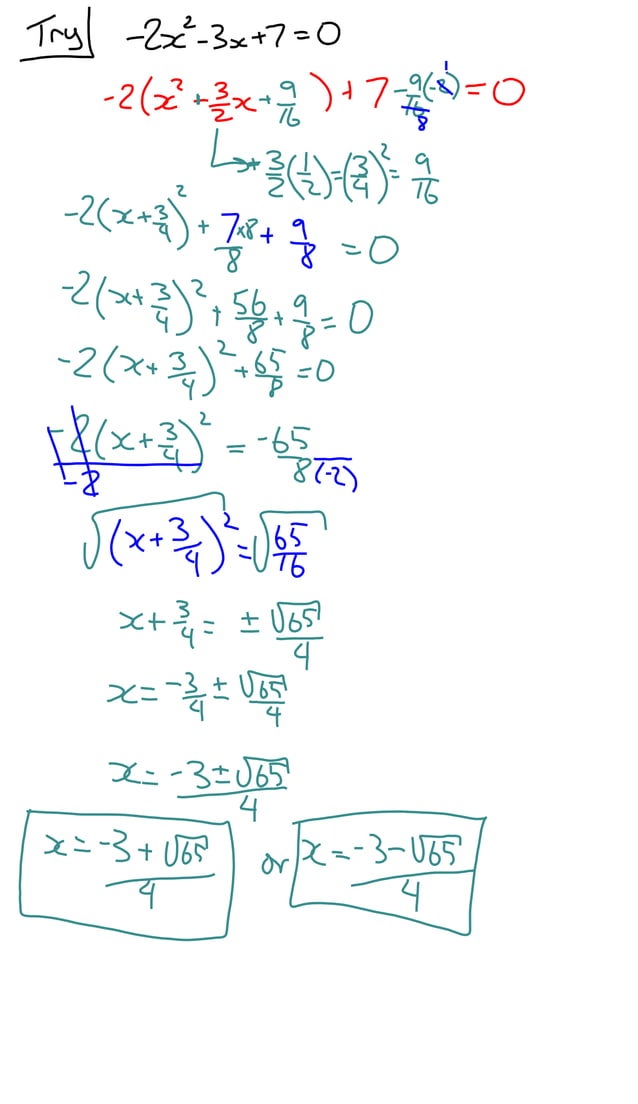 Try -2x² - 3x + 7 = 0
-2(x² + 3/2 x + 9/16) + 7 - 9/16(-2) = 0
→ + 3/2(1/2) = (3/4)² = 9/16
-2(x + 3/4)² + 7×8/8 + 9/8 = 0
-2(x + 3/4)² + 56/8 + 9/8 = 0
-2(x + 3/4)² + 65/8 = 0
-2(x + 3/4)²/-2 = -65/8(-2)
√(x + 3/4)² = √65/16
x + 3/4 = ± √65/4
x = -3/4 ± √65/4
x = -3 ± √65/4
x = -3 + √65/4 or x = -3 - √65/4